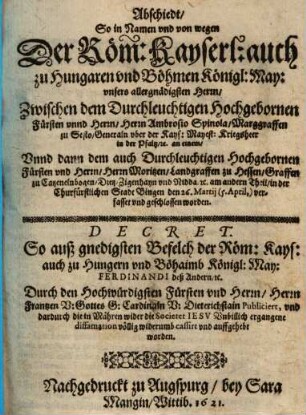 Abschiedt/
So in Namen vnd von wegen
Der Röm: Kayserl: auch
zu Hungaren vnd Böhmen Königl: May:
vnsers allergnädigsten Herrn/
Zwischen dem Durchleuchtigen Hochgebornen
Fürsten vnnd Herrn/ Herrn Ambrosio Spinola/ Marggraffen
zu Sesto/ Generaln vber der Kays: Mayest: Kriegsheer
in der Pfaltz/ꝛc. an einem/
Vnnd dann dem auch Durchleuchtigen Hochgebornen
Fürsten vnd Herrn/ Herrn Moritzen/ Landgraffen zu Hessen/ Graffen
zu Catzenelnbogen/ Dietz/ Zigenhayn vnd Nidda ꝛc. am andern Theil/ in der
Churfürstlichen Statt Bingen den 26. Martij (5. April,) ver-
fasset vnd geschlossen worden.
DECRET.
So auß gnedigsten Befelch der Röm: Kays:
auch zu Hungern vnd Böhaimb Königl: May:
FERDINANDI deß Andern. ꝛc.
Durch den Hochwürdigsten Fürsten vnd Herrn/ Herrn
Frantzen V: Gottes G: Cardinaln V: Dieterichstain Publiciert, vnd
dardurch die in Mähren wider die Societet IESV Vnbillich ergangene
diffamation völlig widerumb cassirt vnd auffgehebt
worden.
Nachgedruckt zu Augspurg/ bey Sara
Mangin/ Wittib. 1621.